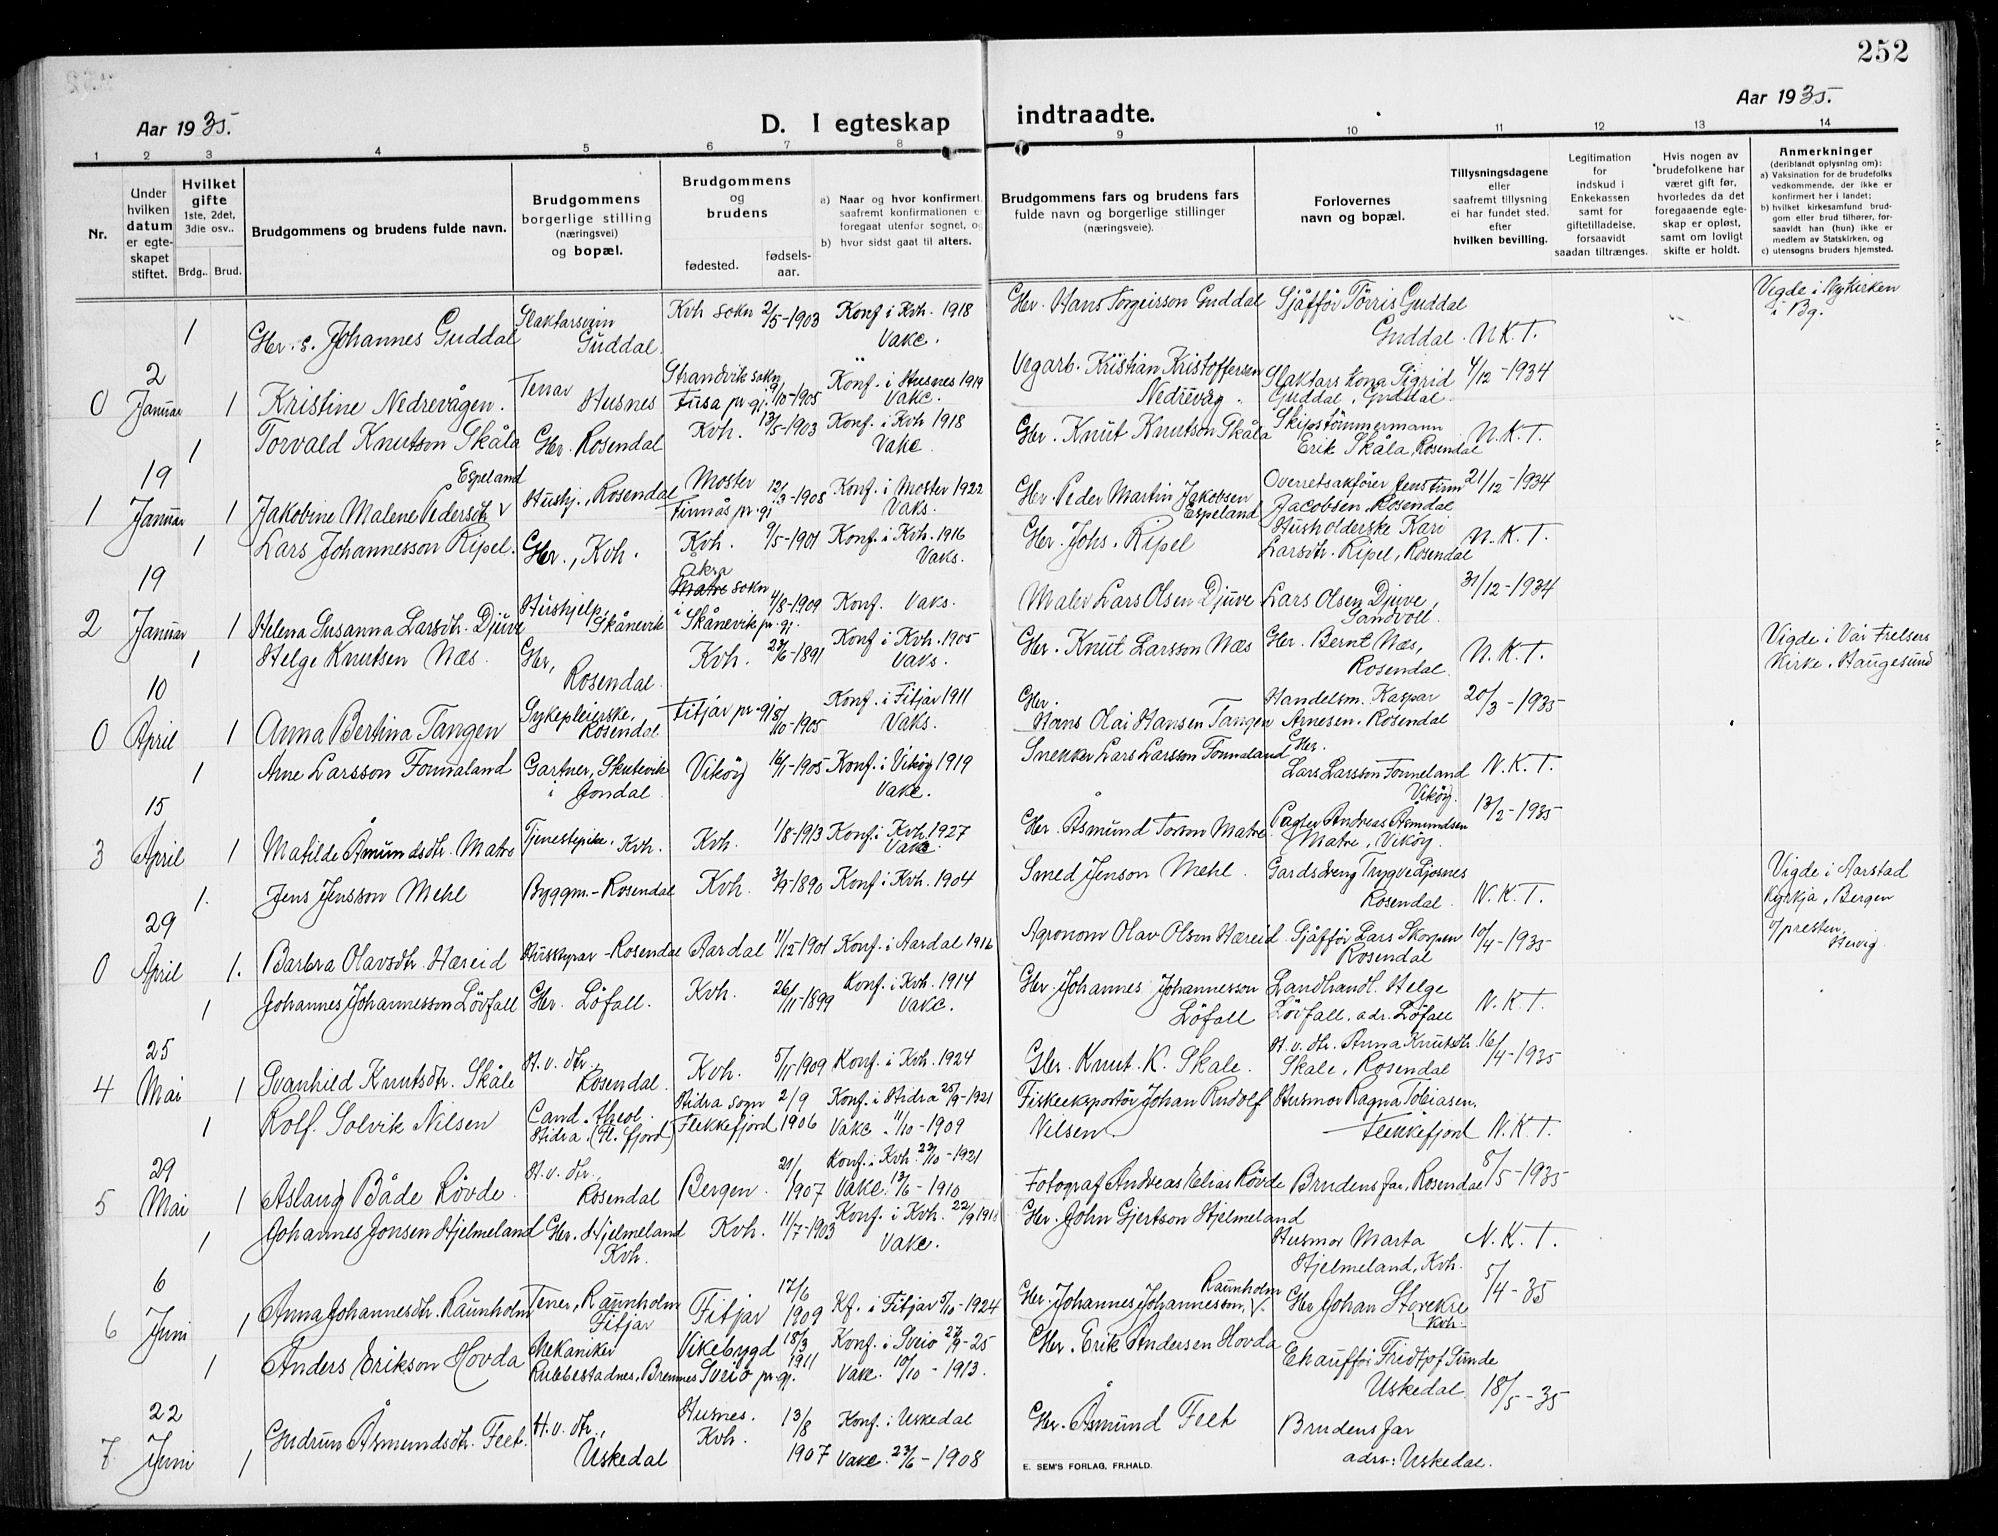 252
Aar 1935.
D. I egteskap indtraadte.
Aar 1935.
1 2 3 4 5 6 7 8 9 10 11 12 13 14
Nr.
Under hvilken datum er egteskapet stiftet.
Hvilket gifte 1ste, 2det, 3die osv..
Brdg.. Brud.
Brudgommens og brudens fulde navn.
Brudgommens borgerlige stilling (næringsvei) og bopæl.
Brudgommens og brudens
fødested. fødselsaar.
a) Naar og hvor konfirmert, saafremt konfirmationen er foregaat utenfor sognet, og
b) hvor sidst gaat til alters.
Brudgommens fars og brudens fars fulde navn og borgerlige stillinger (næringsveie).
Forlovernes navn og bopæl.
Tillysningsdagene eller saafremt tillysning ei har fundet sted. efter hvilken bevilling.
Legitimation for indskud i Enkekassen samt for giftetilladelse, forsaavidt saadan tiltrænges.
Hvis nogen av brudefolkene har været gift før, hvorledes da det foregaaende egteskap er opløst, samt om lovligt skifte er holdt.
Anmerkninger (deriblandt oplysning om): a) Vaksination for de brudefolks vedkommende, der ikke er konfirmert her i landet; b) hvilket kirkesamfund brudgom eller brud tilhører, forsaavidt han (hun) ikke er medlem av Statskirken, og c) utensogns bruders hjemsted.
1 Gbr. s. Johannes Guddal Slaktarsvein Guddal. Kvh sokn 2/5-1903 Konf i Kvh. 1918 Vake. Gbr. Hans Torgeirsson Guddal Sjåffør Tørris Guddal Guddal. N.K.T. Vigde i Nykirken i Bg.
0 2 Januar 1 Kristine Nedrevågen. Tenar Husnes Strandvik sokn Fusa pr.gj. 9/10-1905 Konf. i Husnes 1919 Vake. Vegarb. Kristian Kristoffersen Nedrevåg. Slaktars kona Sigrid Guddal, Guddal. 4/12-1934
1 Torvald Knutson Skåla Gbr. Rosendal Kvh. 13/5-1903 Konf. i Kvh 1918 Vake Gbr. Knut Knutson Skåla Skipstømmermann Erik Skåla, Rosendal N.K.T.
1 19 Januar 1 Jakobine Malene Pedersdtr Espeland Hushj., Rosendal Moster Finnås pr.gj 12/3-1908 Konf. i Moster 1922 Vaks. Gbr. Peder Martin Jakobsen Espeland Overretsakfører Jenstinn Jacobsen, Rosendal 21/12-1934
1 Lars Johannesson Ripel. Gbr., Kvh. Kvh. 9/5-1901 Konf. i Kvh. 1916 Vaks. Gbr. Johs. Ripel Husholderske Kari Larsdtr. Ripel, Rosendal N.K.T.
2 19 Januar 1 Helena Susanna Larsdtr. Djuve Hushjelp, Skånevik Åkra Matre sokn i Skånevik pr.gj. 4/8-1909 Konf. Vaks. Maler Lars Olsen Djuve Lars Olsen Djuve, Sandvoll. 31/12-1934
1 Helge Knutsen Næs. Gbr, Rosendal Kvh. 23/6-1891 Konf i Kvh. 1905 Vaks. Gbr. Knut Larsson Næs Gbr. Bernt Næs, Rosendal. N.K.T. Vigde i Vår Frelsers kirke, Haugesund
0 10 April 1 Anna Bertina Tangen Sykepleierske, Rosendal Fitjar pr.gj 8/10-1905 Konf. i Fitjar 1911 Vaks. Gbr. Hans Olai Hansen Tangen Handelsm. Kaspar Arnesen. Rosendal 20/3-1935
1 Arne Larsson Fonnaland Gartner, Skutevik i Jondal. Vikøy 16/1-1905 Konf. i Vikøy 1919 Vake. Snekker Lars Larsson Fonnaland Gbr. Lars Larsson Fonneland Vikøy. N.K.T.
3 15 April 1 Matilde Åmundsdtr. Matre Tjenestepike, Kvh. Kvh. 1/8-1913 Konf. i Kvh. 1927 Vake. Gbr. Åsmund Torson Matre Andreas Åsmundsen Matre, Vikøy. 13/2-1935
1. Jens Jensson Mehl Byggm.-Rosendal Kvh. 3/9-1890 Konf i Kvh. 1904 Smed Jenson Mehl. Gardsdreng Trygve Djosnes Rosendal. N.K.T. Vigde i Aarstad kyrkja, Bergen
0 29 April 1. Barbra Olavsdtr. Hæreid Husstyrar-Rosendal Aardal 11/12-1901 Konf. i Aardal 1916 Agronom Olav Olson Hæreid Sjåffør Lars Skorpen Rosendal 10/4-1935 v/presten
1 Johannes Johannesson Løvfall Gbr. Løfall. Kvh. 26/11-1899 Konf. i Kvh. 1914 Vake. Gbr Johannes Johannesson Løfall Landhandl. Helge Løvfall, adr. Løfall N.K.T.
4 25 Mai 1 Svanhild Knutsdtr. Skåle H.v. dtr., Rosendal. Kvh. 5/11-1909 Konf. i Kvh. 1924 Gbr. Knut K. Skale. H.v. dtr. Anna Knutsdtr. Skale, Rosendal 16/4-1935
1 Rolf Solvik Nilsen Cand. theol. Hidra (Fl. fjord) Hidra sogn Flekkefjord 2/9 1906 Konf. i Hidra 25/9-1921 Vake. 11/10-1909 Fiskeeksportør Johan Rudolf Nilsen. Husmor Ragna Tobiasen. Flekkefjord N.K.T.
5 29 Mai 1 Aslaug Både Røvde. H.v. dtr., Rosendal Bergen. 21/1 1907 Konf. i Kvh. 23/10-1921 Vake. 13/6-1910 Fotograf Andreas Elias Røvde Brudens far, Rosendal 8/5-1935
1 Johannes Jonsen Hjelmeland Gbr. Hjelmeland Kvh. Kvh. 11/7-1903 Konf. i Kvh. 22/9 1918 Vake. Gbr. John Gjertson Hjelmeland Husmor Marta Hjelmeland, Kvh. N.K.T.
6 6 Juni 1 Anna Johannesdtr. Raunholm Tener, Raunholm Fitjar Fitjar 17/6 1909 Kf. i Fitjar 5/10-1924 Gbr. Johannes Johannesson Raunholm Gbr Johan Storekre Kvh. 5/4-35
1 Anders Erikson Hovda Mekaniker Rubbestadnes, Bremnes Vikebygd Sveio pr.gj. 18/3 1911 Konf. i Sveio 27/9-25 Vake. 10/10-1913. Gbr. Erik Andersen Hovda Chauffør Fridtjof Sunde Uskedal. 18/5-35
7 22 Juni 1 Gudrun Åsmundsdtr. Feet. H.v. dtr., Uskedal Husnes. Kvh. 13/8 1907 Konf. i Uskedal Vake. 23/6-1908 Gbr. Åsmund Feet Brudens far adr.: Uskedal.
E. SEM'S FORLAG, FR.HALD.